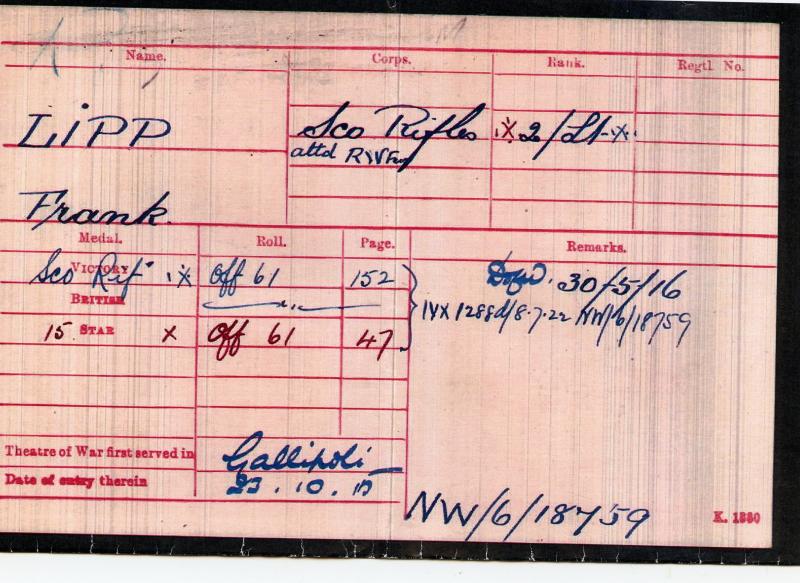 Name. Corps. Rank. Regtl. No.
LIPP Sco Rifles ※ 2/Lt ※
attd
Frank.
Medal. Roll. Page. Remarks.
VICTORY Sco Rif ※ Off 61 152 30/5/16
BRITISH — " — IVX 1288d/8.7.22 NW/6/18759
15 STAR x Off 61 47
Theatre of War first served in Gallipoli
Date of entry therein 23.10.15
NW/6/18759 K. 1380